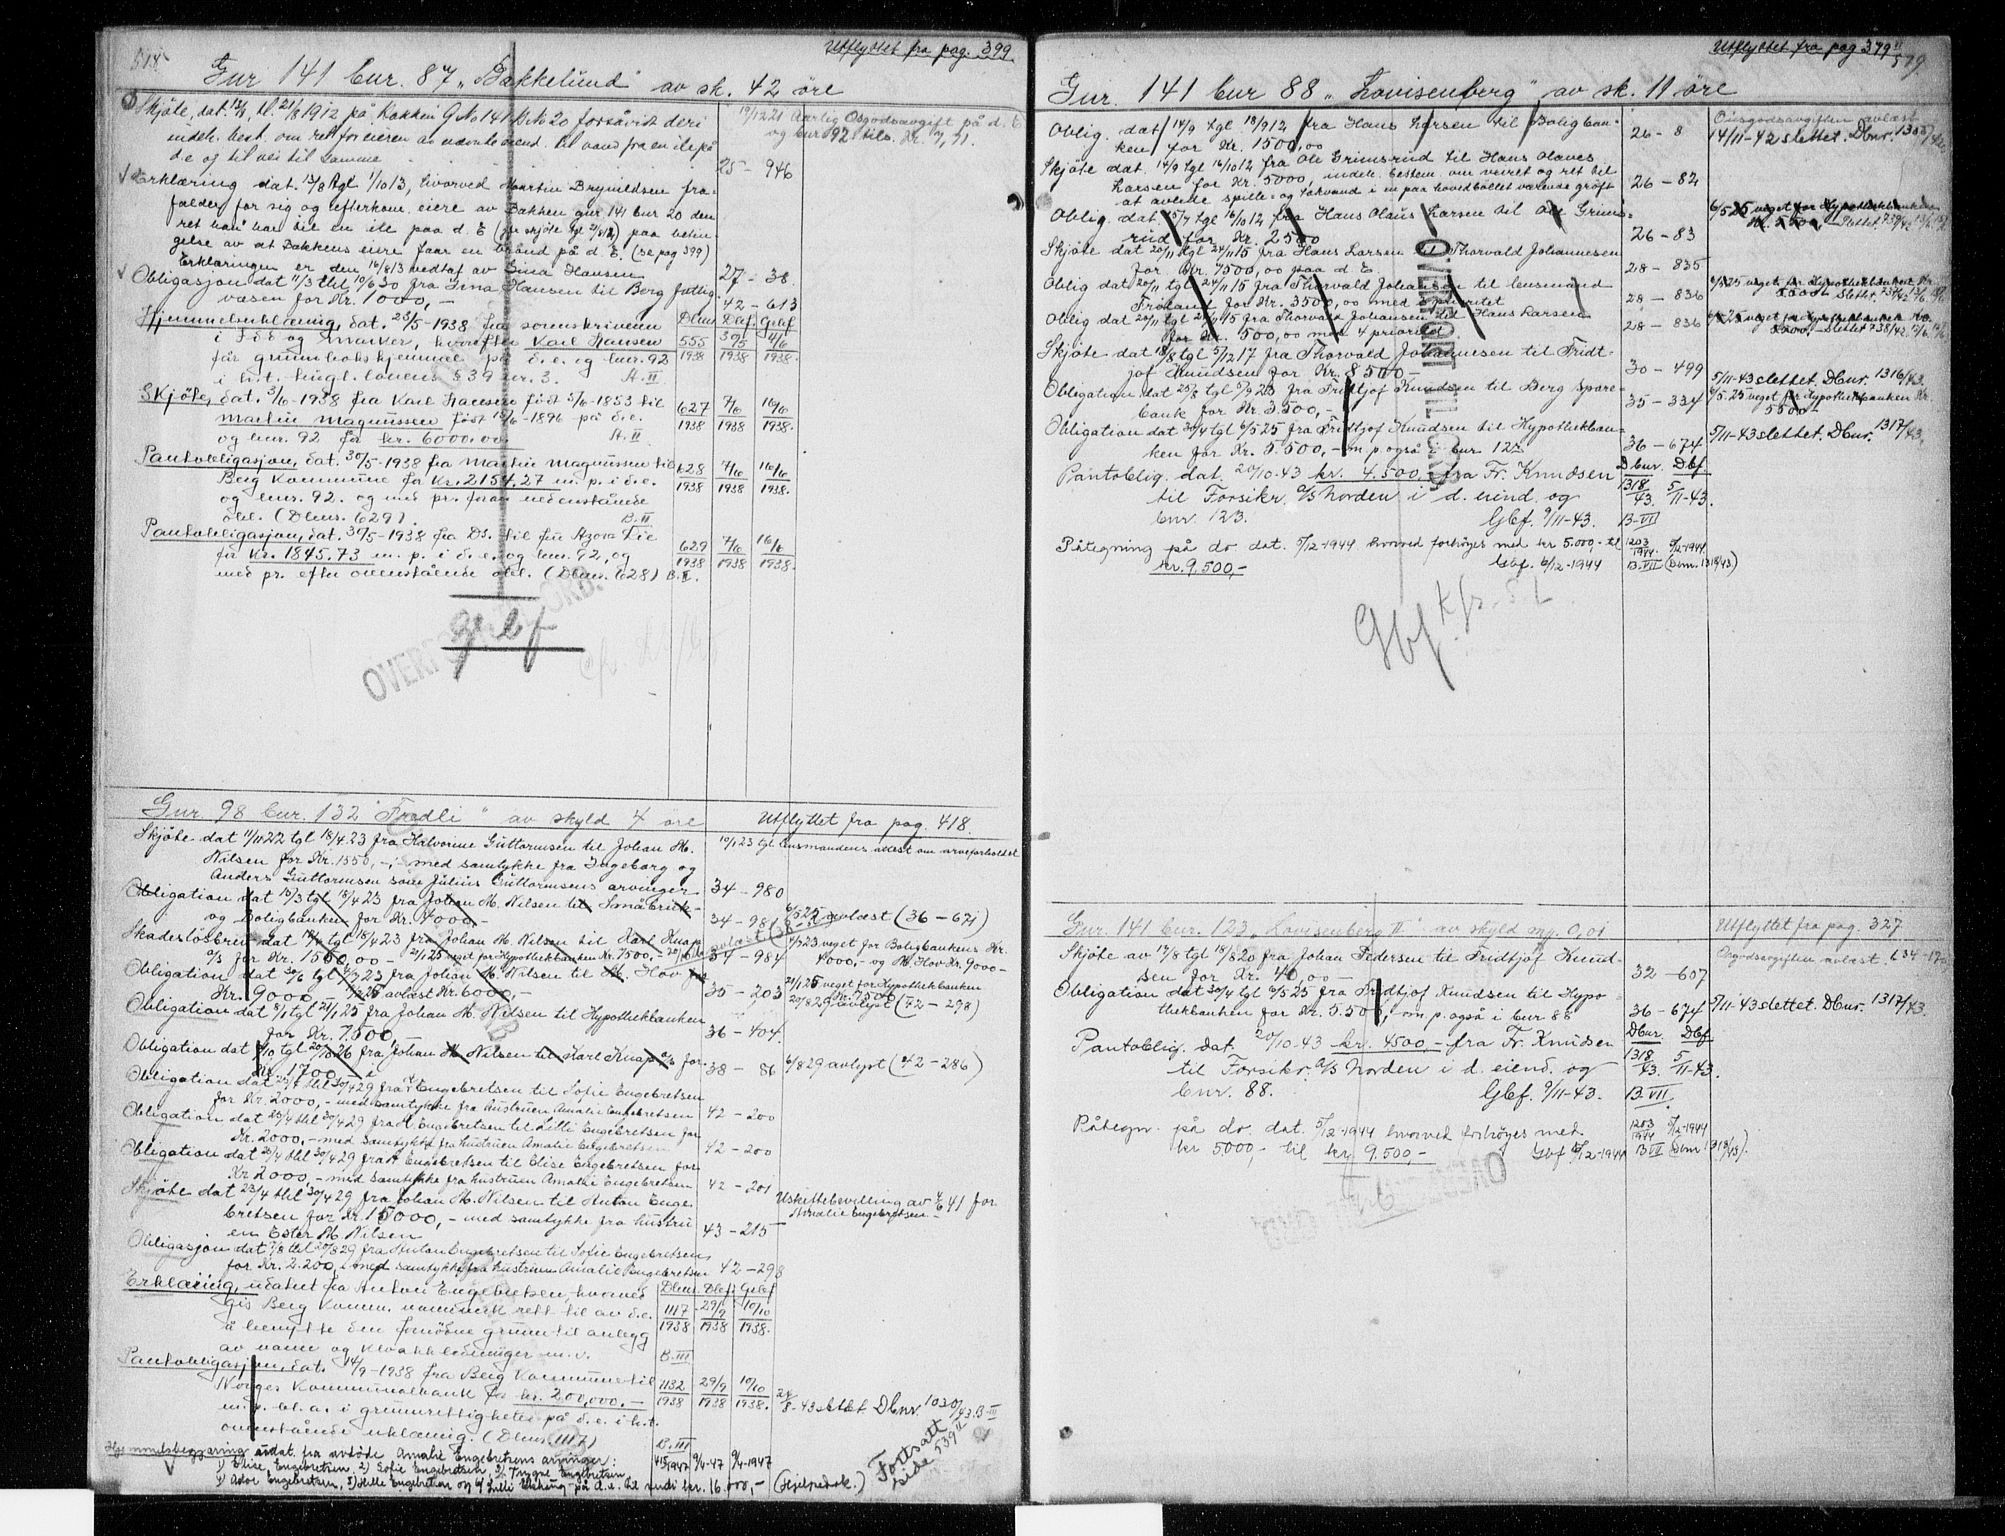 Utflyttet fra pag. 399
Gnr 141 bnr. 87 „Bakkelund" av sk. 42 öre
Skjöte, dat. tl. 21/8 1912 på Bakken G.No 141 B.No 20 forsåvidt deri
indeh. best. om ret for eieren av nævnte eiend. til vand fra en ile på
d.e og til vei til samme 25 - 946
19/12 21 Aarlig Osgodsavgift på d. E
og bnr 92 tils. Kr. 7,71.
Erklæring dat. 13/8 tgl 1/10 13, hvorved Martin Brynildsen fra-
falder for sig og efterkom. eiere av Bakken gnr 141 bnr 20 den
ret han har til en ile paa d. E (se skjöte tgl 21/8 12) paa betin-
gelse av at Bakkens eiere faar en brönd på d. E. (se pag 399)
Erklæringen er den 16/8 13 vedtat av Gina Hansen 27 - 38
Obligasjon dat 11/3 tgl 10/6 30 fra Gina Hansen til Berg fattig-
væsen for Kr. 1000,- 42 - 613
Hjemmelserklæring, dat. 23/5-1938 fra sorenskriveren
i Idd og Marker, hvorefter Karl Hansen
får grunnboks hjemmel på d.e. og bnr. 92
i h.t. tingl. lovens § 39 nr. 3. A. II
Dbnr. Dbf. Gbf.
555 1938
Skjöte, dat. 3/6-1938 fra Karl Hansen föst 5/6-1853 til
Martin Magnussen föst 18/6-1896 på d.e.
og bnr. 92 for kr. 6000,00 A. II
627 1938 7/6 1938 16/6 1938.
Pantobligasjon, dat. 30/5-1938 fra Martin Magnussen til
Berg Kommune for kr. 2154.27 m. p. i d.e.
og bnr. 92. og med pr. foran nedenstående
obl. (Dbnr. 629). B. II
628 1938 7/6 1938 16/6 1938.
Pantobligasjon, dat. 30/5-1938 fra Ds. til fru Azora Lie
for kr. 1845.73 m. p. i d.e. og bnr. 92, og
med pr. efter ovenstående obl. (Dbnr. 628) B. II.
629 1938 7/6 1938 16/6 1938.
Gbf
Gnr. 98 bnr. 132 "Fredli" av skyld 4 öre
Utflyttet fra pag. 418.
Skjöte dat 11/11 22 tgl 18/4 23 fra Halvorine Guttormsen til Johan M.
Nilsen for Kr. 1550,-, med samtykke fra Ingeborg og
Anders Guttormsen som Julius Guttormsens arvinger 34 - 980
19/1 23 tgl Lensmandens attest om arveforholdet
Obligation dat 13/3 tgl 18/4 23 fra Johan M. Nilsen til Småbruk-
og Boligbanken for Kr. 4000,- 34 - 981
6/5 25 avlæst (36 - 671)
Skadeslösbrev dat tgl 18/4 23 fra Johan M. Nilsen til Karl Knap
a/s for Kr. 1500,00 - 21/1 25 veget for Hypothekbanken Kr. 7500,- 34 - 984
4/7 23 veget for Boligbankens Kr.
4000,- og M. Hov Kr. 9000-
Obligation dat 30/6 tgl 4/7 23 fra Johan M. Nilsen til M. Hov for
Kr. 9000 avlæst Kr. 6000,- 35 - 203
21/1 25 veget for Hypothekbanken
Kr. 7500
Obligation dat 8/1 tgl 21/1 25 fra Johan M. Nilsen til Hypothekbanken
for Kr. 7500 36 - 404.
20/8 29 avlyst (42 - 298)
Obligation dat tgl 26 fra Johan M. Nilsen til Karl Knap a/s for
Kr. 1700,- 38 - 86
6/8 29 avlyst (42 - 286)
Obligation dat 23/4 tgl 30/4 29 fra A Engebretsen til Sofie Engebretsen
for Kr. 2000,- med samtykke fra hustruen Amalie Engebretsen 42 - 200
Obligation dat 23/4 tgl 30/4 29 fra A Engebretsen til Lilli Engebretsen for
Kr. 2000,- med samtykke fra hustruen Amalie Engebretsen 42 - 200
Obligation dat 23/4 tgl 30/4 29 fra A Engebretsen til Elise Engebretsen for
Kr 2000,- med samtykke fra hustruen Amalie Engebretsen 42 - 201
Skjöte dat 23/4 tgl 30/4 29 fra Johan M. Nilsen til Anton Enge-
bretsen for Kr. 15000,- med samtykke fra hustru-
en Ester M Nilsen 43 - 215
Uskiftebevilling av 41 for
Amalie Engebretsen -
Obligasjon dat 7/8 tgl 20/8 29 fra Anton Engebretsen til Sofie Engebretsen
for Kr. 2.200,- med samtykke fra hustruen Amalie Engebretsen 42 - 298
Erklæring, utstedt fra Anton Engebretsen, hvorved
gis Berg Komm. vannverk rett til av d.e.
å benytte den fornödne grunn til anlegg
av vann og kloakkledninger m.v. B. III
Dbnr. Dbf. Gbf.
1117 1938 29/9 1938 10/10 1938.
Pantobligasjon, dat. 14/9-1938 fra Berg Kommune til
Norges Kommunalbank for kr. 200,000.-
m. p. bl. a. i grunnrettigheter på d.e. i h.t.
ovenstående erklæring. (Dbnr. 1117) B. III
1132 1938 29/9 1938 10/10 1938.
43 slettet Dbnr. 1030/43. B-III
Hjemmelsbegjæring utdat. fra avdöde Amalie Engebretsens arvinger:
1) Elise Engebretsen, 2) Sofie Engebretsen, 3) Trygve Engebretsen
til verdi kr. 16.000,- (Hjelpedok.)
415/1947 9/4-47 9/4-1947
Fortsatt
side 539 II
Utflyttet fra pag 379 II
579
Gnr. 141 bnr 88 „Lovisenberg" av sk. 11 öre
Oblig. dat 14/9 tgl 18/9 12 fra Hans Larsen til Boligban-
ken for Kr. 1500,00 26 - 8
Ousgodsavgiften avlæst
14/11-42 slettet. Dbnr. 1305/42
Skjöte dat. 14/9 tgl 16/10 12 fra Ole Grimsrud til Hans Olaves
Larsen for Kr. 5000, indeh. bestem. om veiret og ret til
at avlede spille- og takvand i en paa hovedböllet værende gröft 26 - 82
Oblig. dat 15/7 tgl 16/10 12, fra Hans Olaus Larsen til Ole Grims-
rud for Kr. 2500 26 - 83
6/5 25 veget for Hypothekbanken
Kr. 5500 Slettet 739/42
Skjöte dat 20/11 tgl 24/11 15 fra Hans Larsen til Thorvald Johannesen
for Kr. 7500,00 paa d. E 28 - 835
Oblig dat 20/11 tgl 24/11 15 fra Thorvald Johansen til lensmand
Frölandt for Kr. 3500,00 med 3 prioritet 28 - 836
Oblig dat 20/11 tgl 24/11 15 fra Thorvald Johansen til Hans Larsen
for Kr. 500,00 med 4 prioritet 28 - 836
Slettet 738/42
Skjöte dat 18/8 tgl 5/12 17 fra Thorvald Johannesen til Fridt-
jof Knudsen for Kr. 8500 - 30 - 499
Obligation dat 25/8 tgl 5/9 23 fra Fridtjof Knudsen til Berg Spare-
bank for Kr. 3.500,- 35 - 334
5/11-43 slettet. Dbnr. 1316/43.
6/5 25 veget for Hypothekbanken Kr.
5500 -
Obligation dat 30/4 tgl 6/5 25 fra Fridtjof Knudsen til Hypothekban-
ken for Kr. 5.500,- m p også i bnr 123 36 - 674
5/11-43 slettet. Dbnr. 1317/43.
Pantoblig. dat. 20/10-43 kr. 4.500,- fra Fr. Knudsen
til Forsikr. a/s Norden i d. eiend. og
bnr. 123. Gbf. 9/11-43.
Dbnr. Dbf.
1318/43. 5/11-43.
B-VII
Påtegning på do dat. 5/12-1944 hvorved forhöyes med kr 5.000,- til
kr. 9.500,- Gbf. 6/12-1944
1203/1944. 5/12-1944
B. VII (Dbnr. 1318/43)
Gbf Kfr.
Gnr. 141 bnr. 123 „Lovisenberg II" av skyld my. 0,01
Utflyttet fra pag. 327
Skjöte av 17/8 tgl 18/8 20 fra Johan Pedersen til Fridtjof Knud-
sen for Kr. 40,00 - 32 - 607
Osgodsavgiften avlæst.
Obligation dat 30/4 tgl 6/5 25 fra Fridtjof Knudsen til Hypo-
thekbanken for Kr. 5.500,- m. p. også i bnr 88 36 - 674
5/11-43 slettet. Dbnr. 1317/43.
Pantoblig. dat. 20/10-43 kr. 4500,- fra Fr. Knudsen
til Forsikr. a/s Norden i d. eiend. og
bnr. 88. Gbf. 9/11-43.
Dbnr. Dbf.
1318/43. 5/11-43.
B-VII.
Påtegn. på do. dat. 5/12-1944 hvorved forhöyes med
kr 5000,- til kr. 9.500,- Gbf 6/12-1944
1203/1944 5/12-1944
B VII (Dbnr 1318/43).